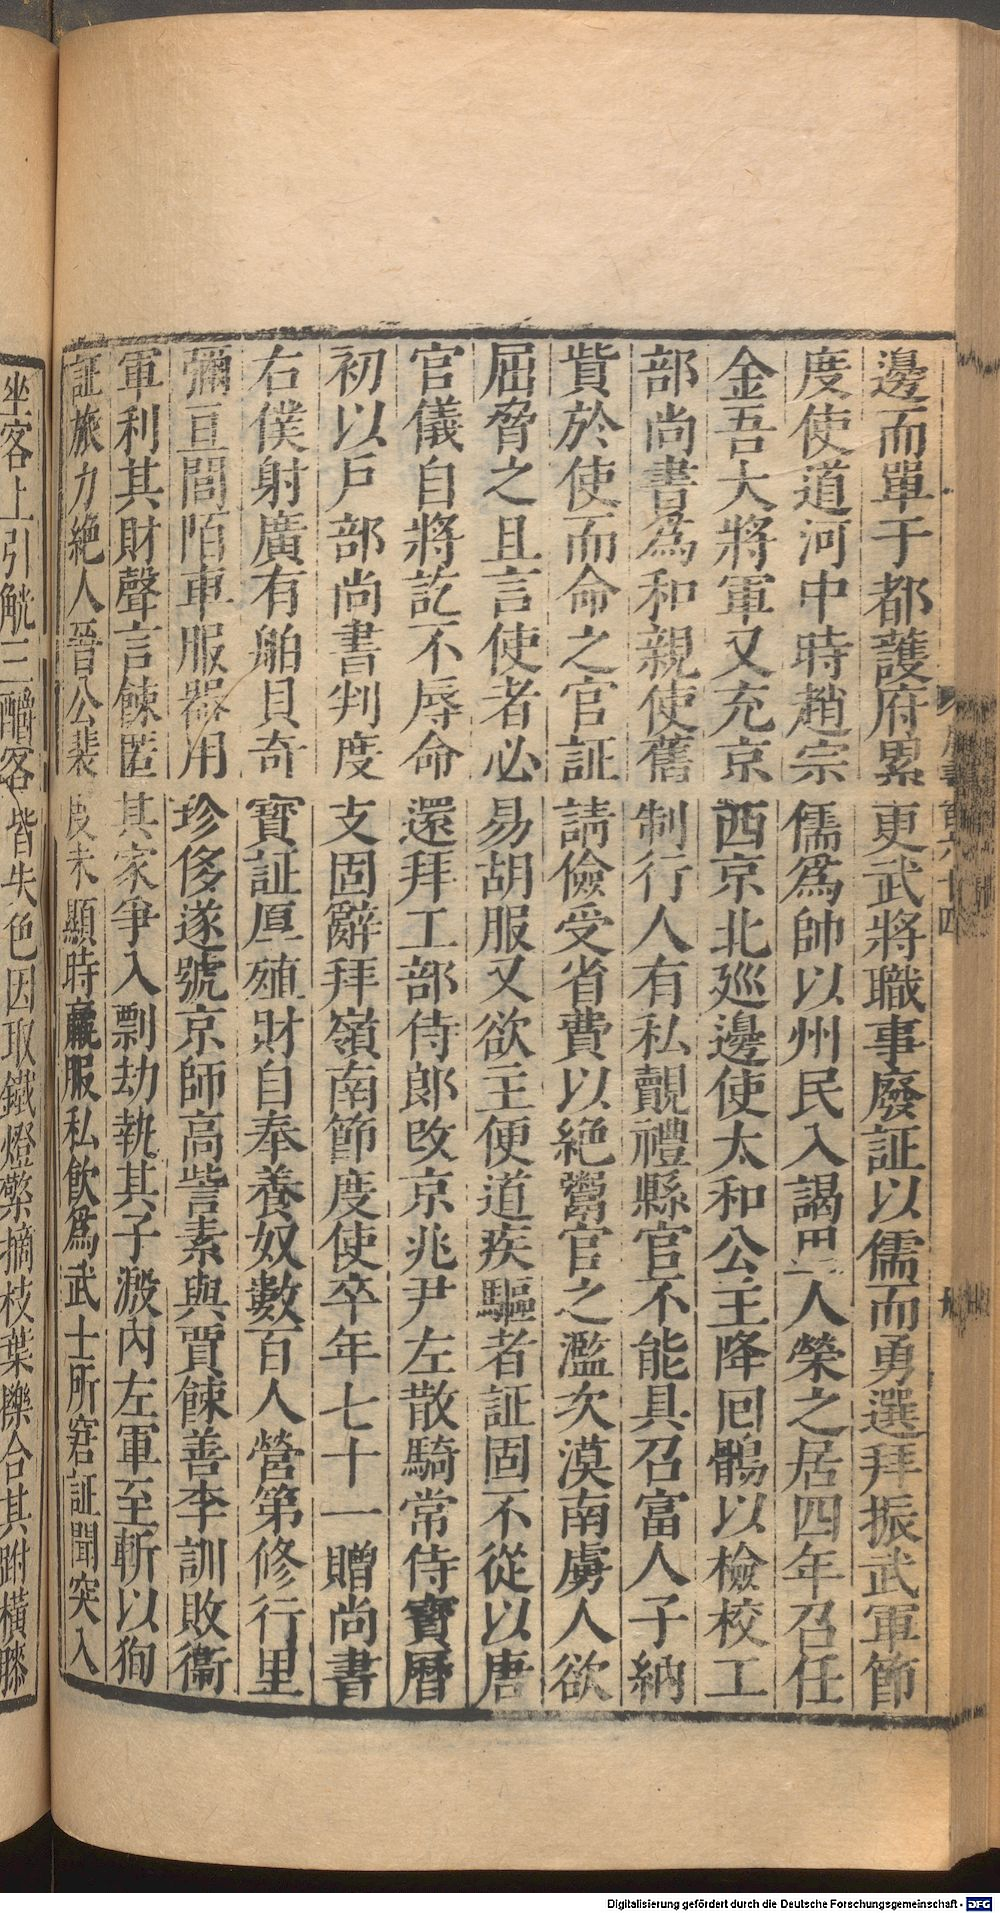 邊而單于都護府累更武將職事廢証以儒而勇選拜振武軍節
度使道河中時趙宗儒爲帥以州民入謁里人榮之居四年召任
金吾大將軍又充京西京北巡邊使太和公主降回鶻以檢校工
部尚書為和親使舊制行人有私覿禮縣官不能具召富人子納
貲於使而命之官証請儉受省費以絶鬻官之濫次漠南虜人欲
屈脅之且言使者必易胡服又欲主便道疾驅者証固不從以唐
官儀自將訖不辱命還拜工部侍郎改京兆尹左散騎常侍寳曆
初以戶部尚書判度支固辭拜嶺南節度使卒年七十一贈尚書
右僕射廣有舶貝奇寳証厚殖財自奉養奴數百人營第修行里
彌亘閭陌車服器用珍侈遂號京師高訾素與賈餗善李訓敗衞
軍利其財聲言餗匿其家爭入剽劫執其子溵內左軍至斬以徇
証旅力絶人晉公裴度未顯時羸服私飲爲武士所窘証聞突入
坐客上引觥三釂客皆失色因取鐵燈檠摘枝葉櫟合其跗橫膝
百六十四
Digitalisierung gefördert durch die Deutsche Forschungsgemeinschaft - DFG